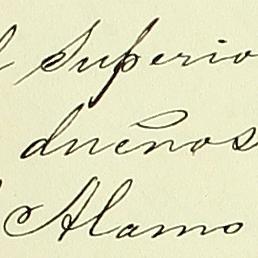 l Superio
dueños
Alamo